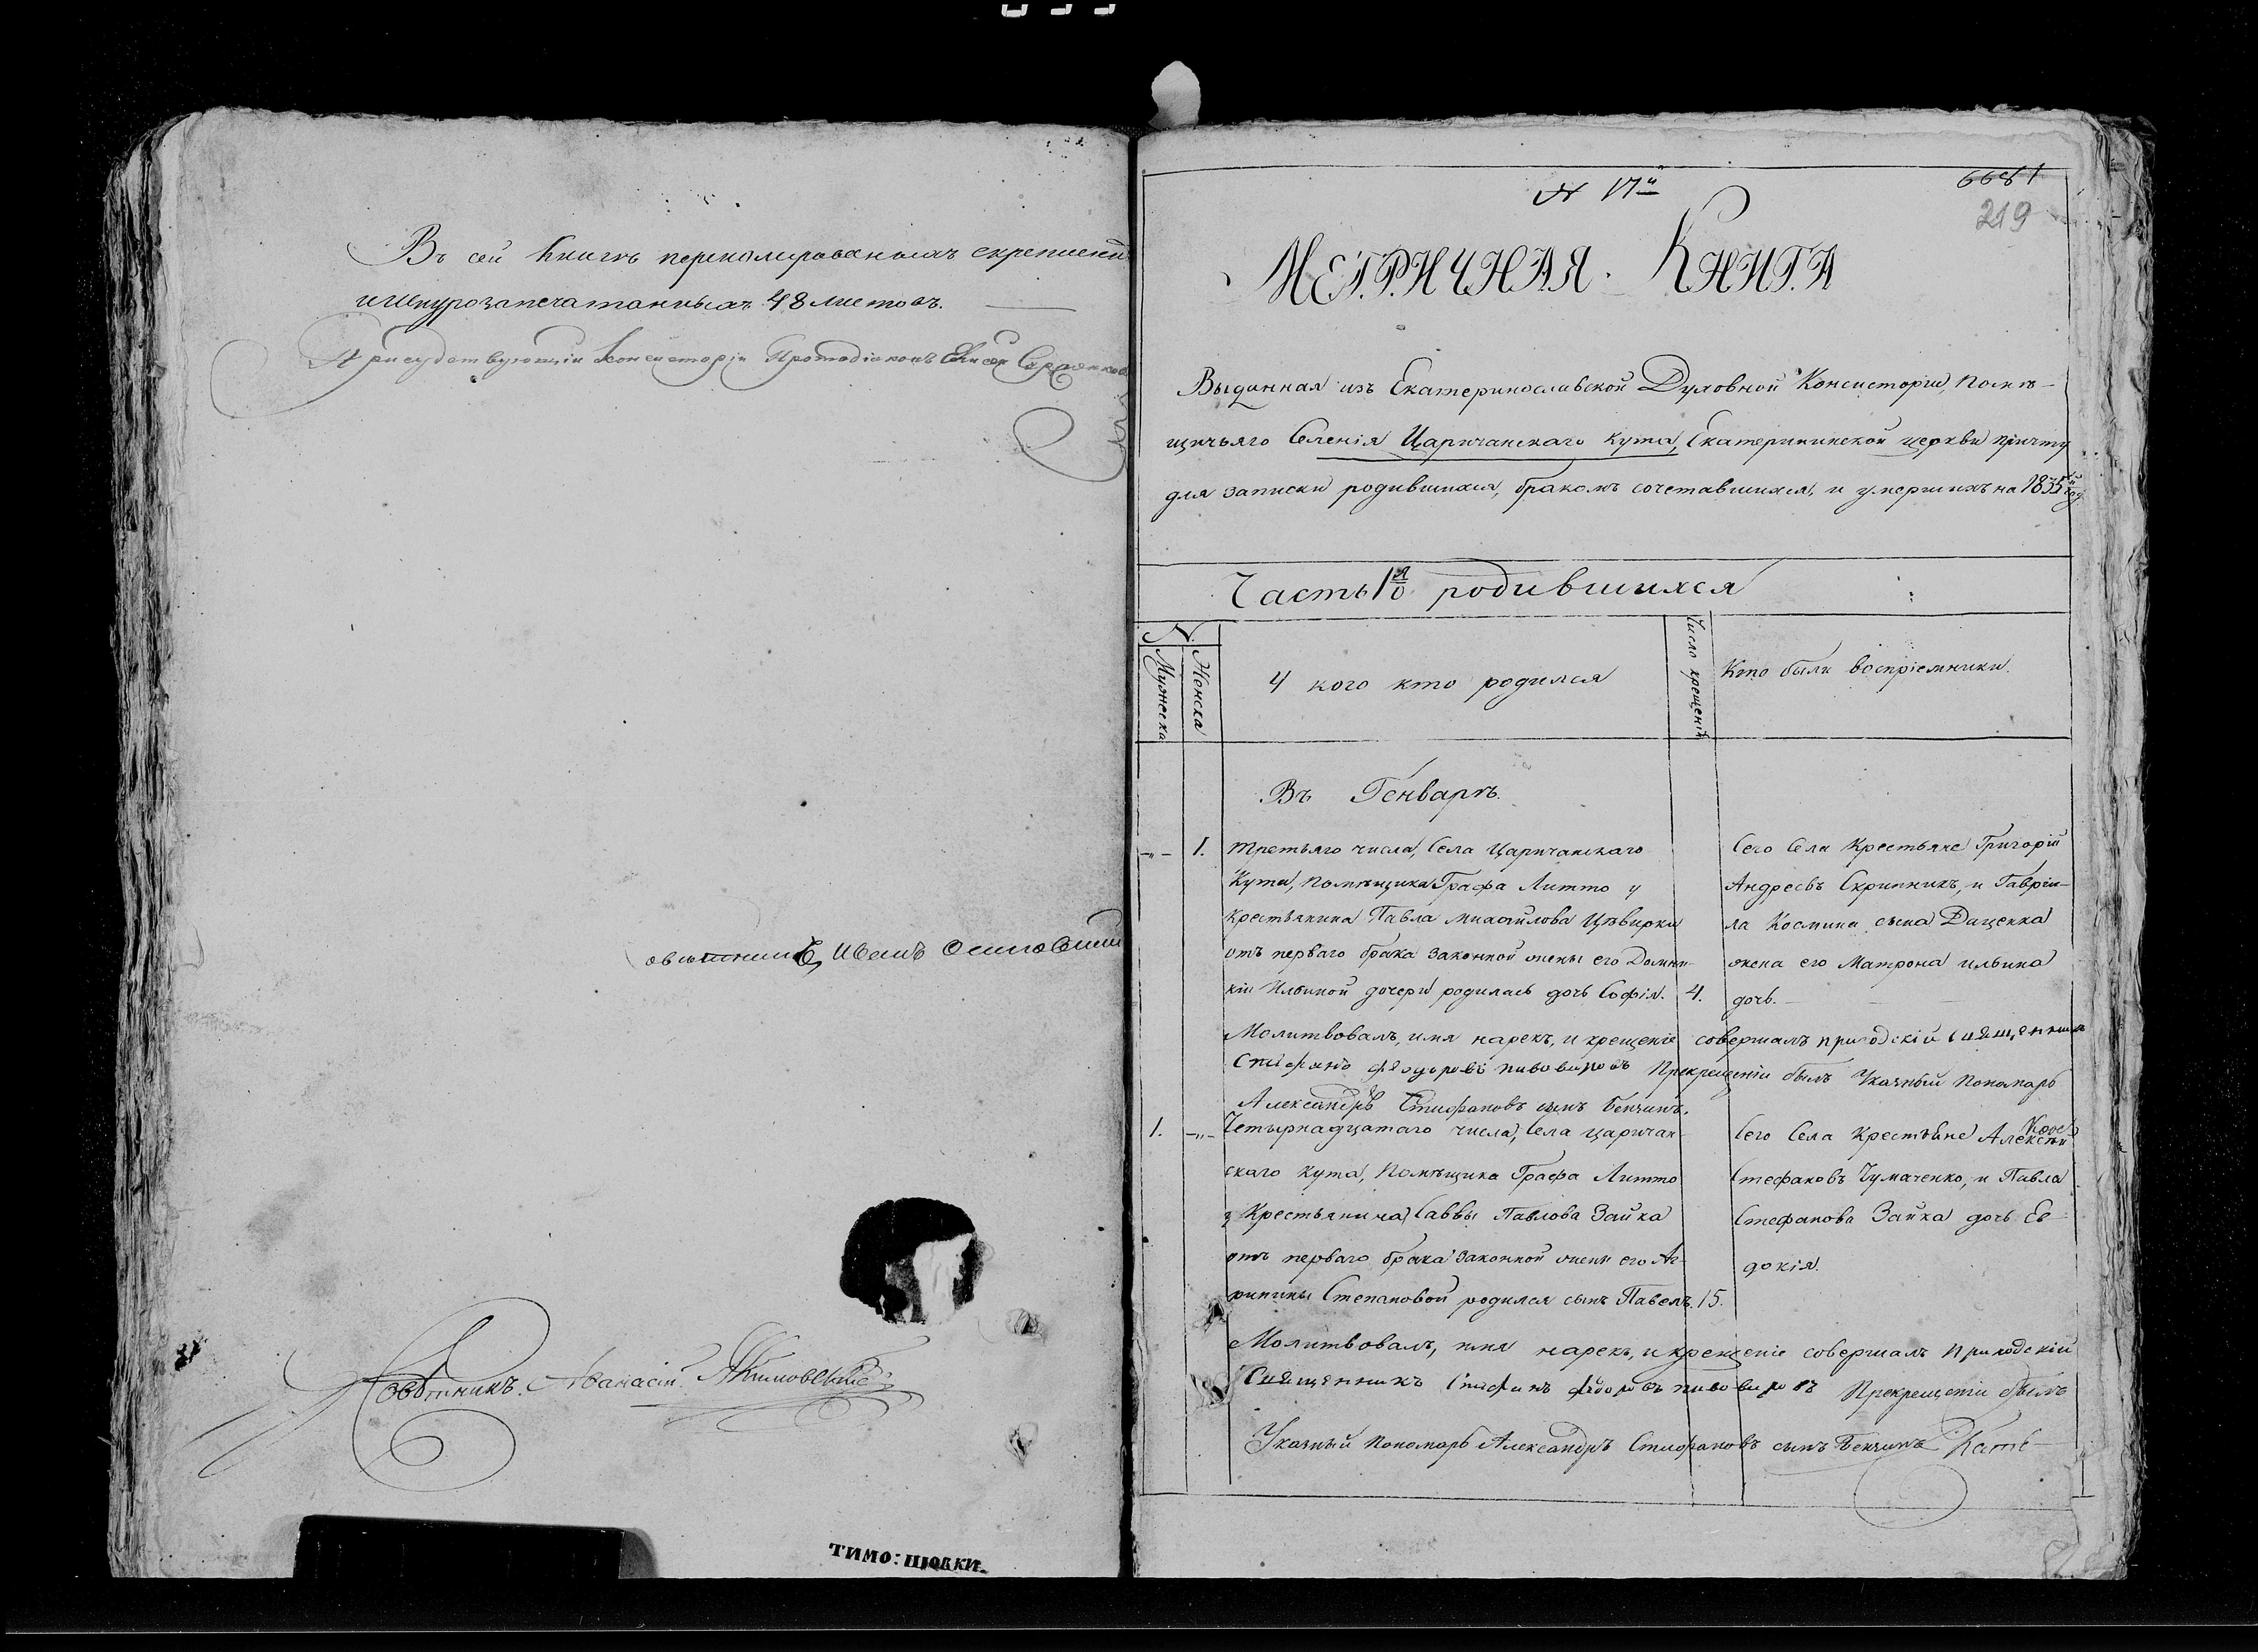 Въ сей книгѣ перенумерованныхъ скрепленн
и шнурозапечатанныхъ 48 листовъ.
Присудствующій Консисторіи Протодіаконъ
Иванъ Осиповичъ
Совѣтникъ Афанасій Якимовскій
ТИМО: ШОВКИ.
№ 17й
6681
219
МЕТРИЧНАЯ КНИГА
Выданная изъ Екатеринославской Духовной Консисторіи, помѣ-
щичьяго Селенія Царичанскаго Кута, Екатерининской церкви причту
для записки родившихся, бракомъ сочетавшихся, и умершихъ на 1835й годъ
Часть 1я о родившихся
№
Мужеска
Женска
У кого кто родился
Число крещенія
Кто были воспріемники.
Въ Генварѣ.
1. третьяго числа, Села Царичанскаго
Кута, Помѣщика Графа Литто у
крестьянина Павла Михайлова Цѣвирки
отъ перваго брака законной жены его Домни-
кіи Ильиной дочери родилась дочь Софія. 4.
Сего Села Крестьяне Григорій
Андреевъ Скрипникъ, и Гавріи-
ла Космина сына Даценка
жена его Матрона Ильина
дочь.
Молитвовалъ, имя нарекъ, и крещеніе совершалъ приходскій Священникъ
Стефанъ Феодоровъ Пивоваровъ Прикрещеніи былъ Указный Пономарь
Александръ Стефановъ сынъ Бенчинъ.
1. Четырнадцатаго числа, Села Царичан-
скаго Кута, Помѣщика Графа Литто
у Крестьянина Саввы Павлова Зайка
отъ перваго брака законной жены его Аг-
рипины Степановой родился сынъ Павелъ. 15.
Сего Села Крестьяне Алексѣй
Стефановъ Чумаченко, и Павла
Стефанова Зайка дочь Ев-
докія.
Молитвовалъ, имя нарекъ, и крещеніе совершалъ приходскій
Священникъ Стефанъ Федоровъ Пивоваровъ Прекрещеніи былъ
Указный Пономарь Александръ Стефановъ сынъ Бенчинъ